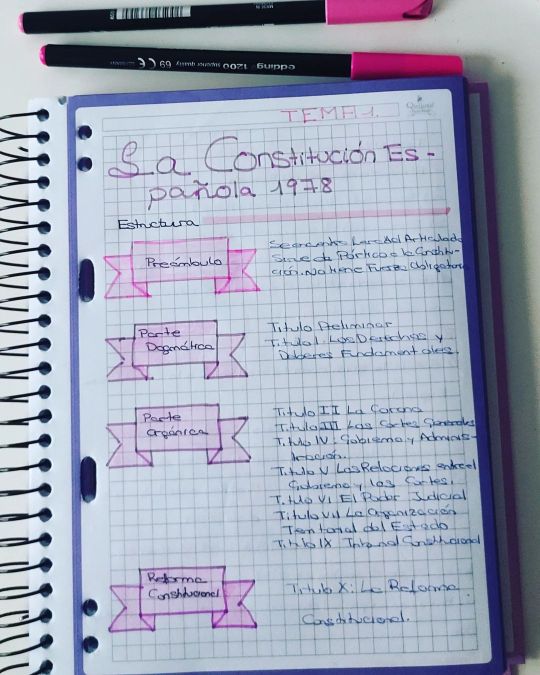 edding 1200 superior quality 69 CE
TEMA 1.
La Constitución Es-
pañola 1978
Estructura
Preámbulo
Se encuentra Fuera del Articulado
Sirve de Pórtico a la Constitu-
ción. No tiene Fuerza Obligatoria
Parte
Dogmática
Titulo Preliminar
Titulo I. Los Derechos y
Deberes Fundamentales.
Parte
Orgánica
Titulo II La Corona
Titulo III. Las Cortes Generales
Titulo IV. Gobierno y Adminis-
tración.
Titulo V Las Relaciones entre el
Gobierno y las Cortes.
Titulo VI. El Poder Judicial
Titulo VIII La Organización
Territorial del Estado
Titulo IX Tribunal Constitucional
Reforma
Constitucional
Titulo X: La Reforma
Constitucional.